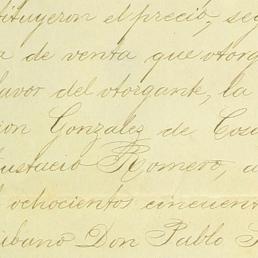 stituyeron el precio, seg
a de venta que otorg
favor del otorgante, la
ion Gonzalez de Cos
ustacio Romero, a
l ochocientos cincuent
ubano Don Pablo